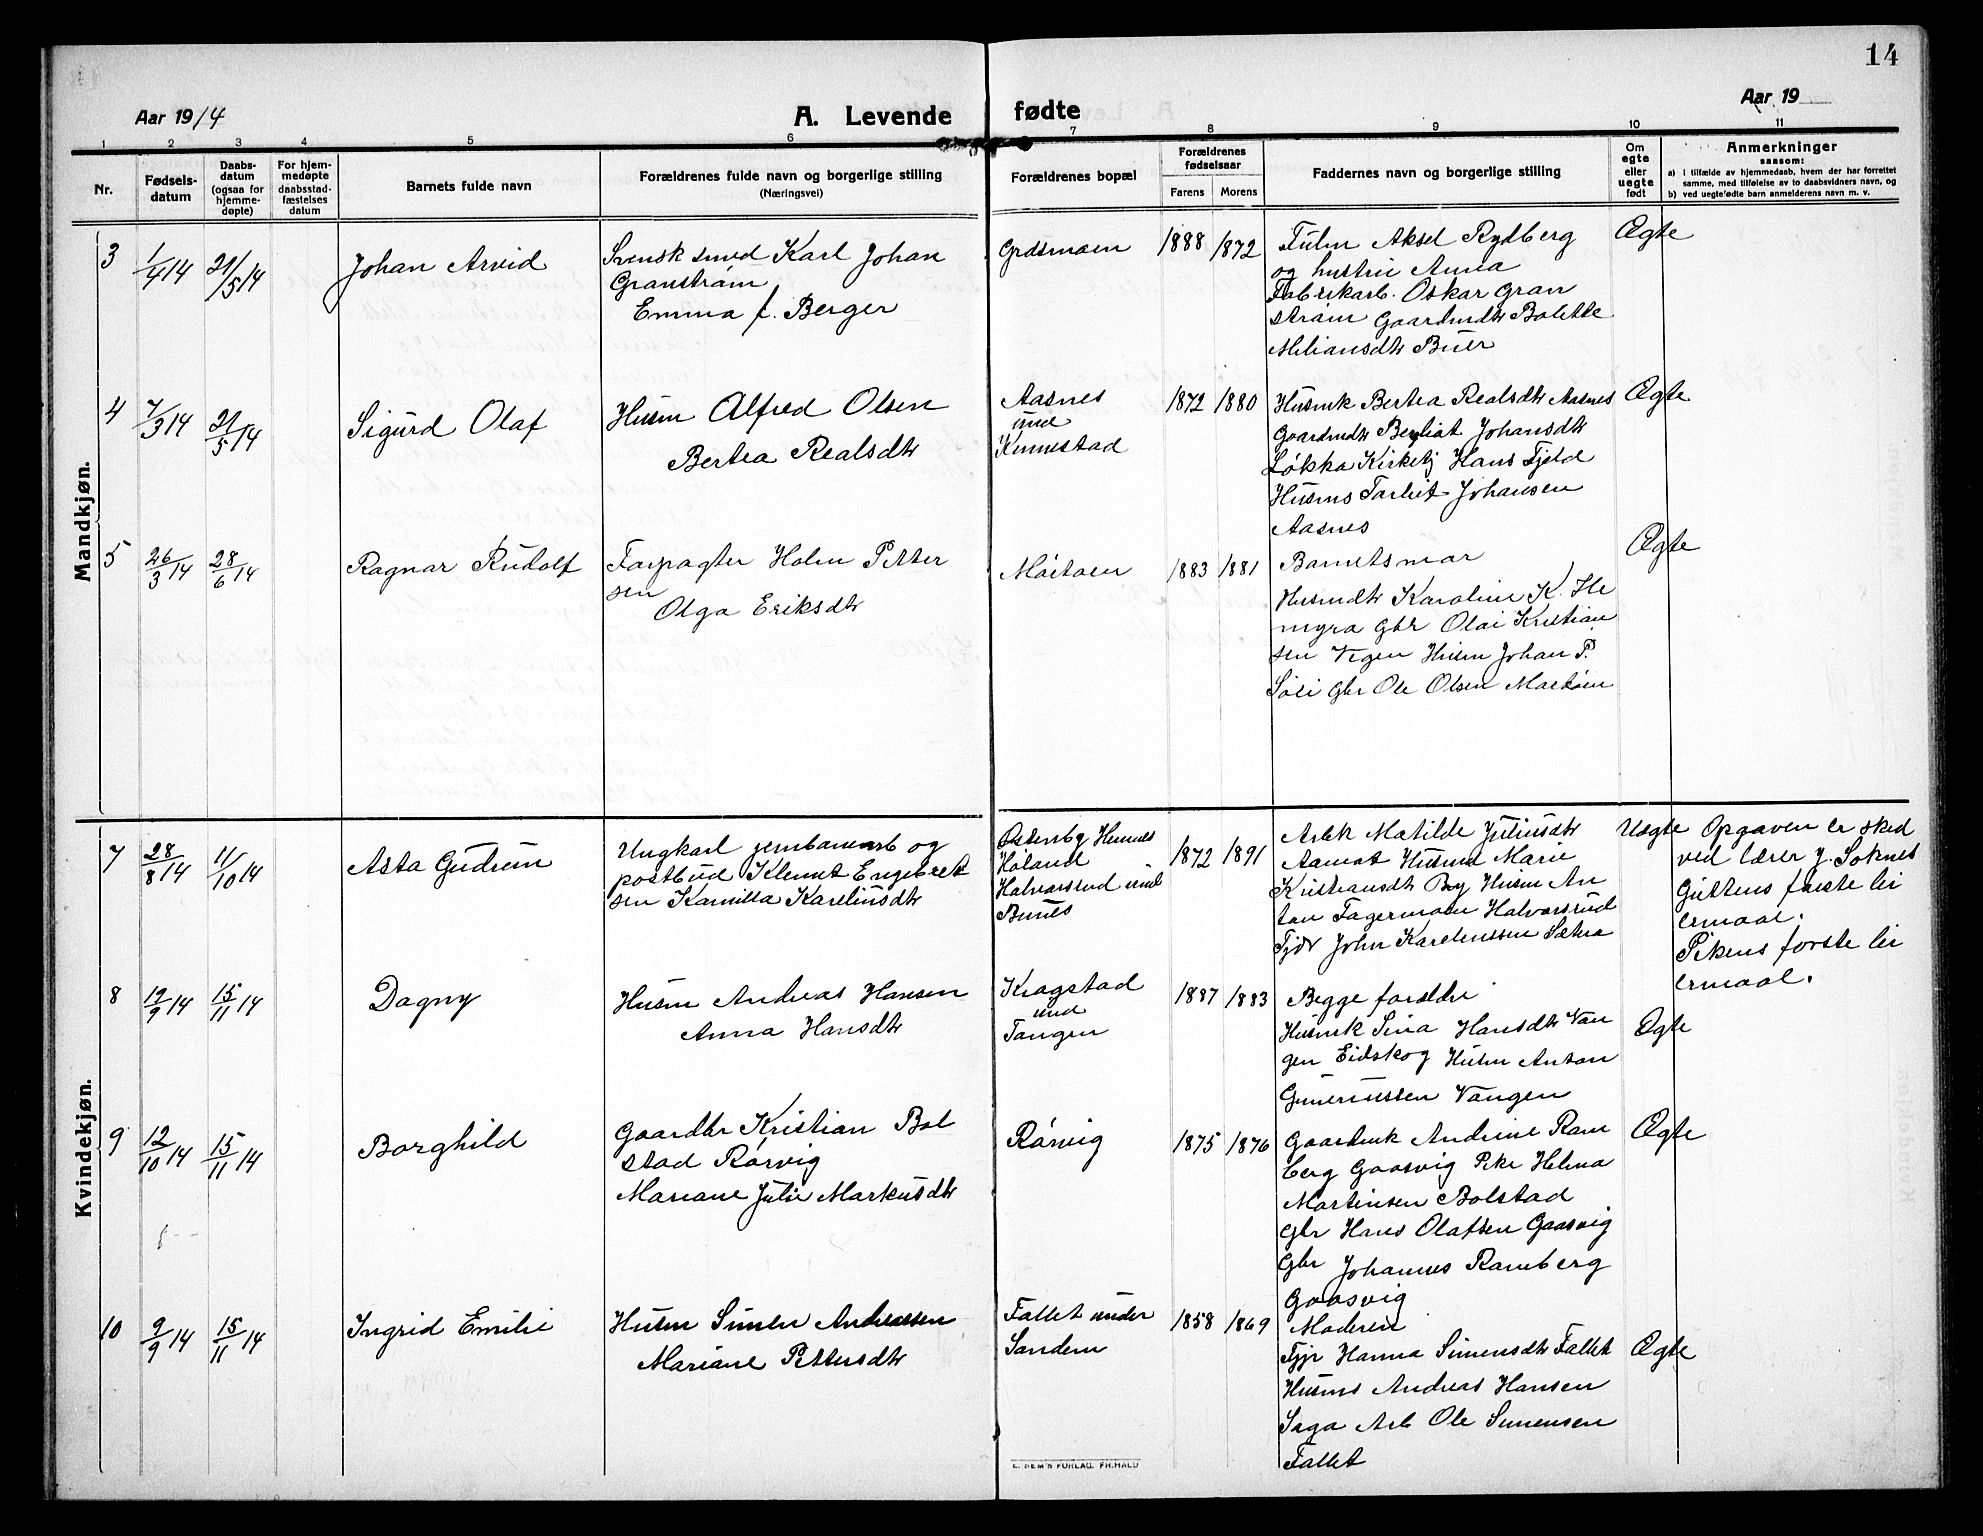 14
Aar 1914
A. Levende fødte
Aar 19
1 2 3 4 5 6 7 8 9 10 11
Nr.
Fødsels-
datum
Daabs-
datum
(ogsaa for
hjemme-
døpte)
For hjem-
medøpte
daabsstad-
fæstelses
datum
Barnets fulde navn
Forældrenes fulde navn og borgerlige stilling
(Næringsvei)
Forældrenes bopæl
Forældrenes
fødselsaar
Farens Morens
Faddernes navn og borgerlige stilling
Om
egte
eller
uegte
født
Anmerkninger
saasom:
a) i tilfælde av hjemmedaab, hvem der har forrettet
samme, med tilføielse av to daabsvidners navn, og
b) ved uegtefødte barn anmelderens navn m. v.
Mandkjøn.
3
1/4 14
21/5 14
Johan Arvid
Svensk smed Karl Johan
Granstrøm
Emma f. Berger
Grasmoen
1888 1872
Aksel Rydberg
og hustru Anna
Fabrikarb. Oskar Gran
strøm Gaardmdtr Bolette
Miliansdtr Buer
Ægte
4
7/3 14
21/5 14
Sigurd Olaf
Husm Alfred Olsen
Bertea Realsdtr
Aasnes
und
Kinnestad
1872 1880
Husmk Bertea Realsdtr Aasnes
Gaardmdtr Johansdtr
Løkka Kirketj Hans Fjeld
Husms Johansen
Aasnes
Ægte
5
26/3 14
28/6 14
Ragnar Rudolf
Forpagter Holm Petter
sen
Olga Eriksdtr
1883 1881
Barnetsmor
Husmdtr Karoline K. He
myra Gbr Olai Kristian
sen Vegen Husm Johan P.
Gbr Ole Olsen
Ægte
Kvindekjøn.
7
28/8 14
11/10 14
Asta Gudrun
Ungkarl jernbanearb og
postbud Klemet Engebret
sen Kamilla Kareliusdtr
Østenby Hemnes
Høland
Halvorsrud und
Bunes
1872 1891
Arbk Matilde Juliusdtr
Husmd Marie
Kristiansdtr By Husm An
ton Fagermoen Halvorsrud
Tjdr John Kareliussen Sætra
Uægte
Opgaven er sked
ved lærer J. Soknes
Guttens første lei
ermaal.
Pikens første lei
ermaal.
8
19/9 14
15/11 14
Dagny
Husm Andreas Hansen
Anna Hansdtr
Kragstad
und
Tangen
1887 1883
Begge forældre
Husmk Sina Hansdtr Van
gen Eidskog Husm Anton
Guneriussen Vangen
Ægte
9
12/10 14
15/11 14
Borghild
Gaardbr Kristian Bol
stad Rørvig
Mariane Julie Markusdtr
Rørvig
1875 1876
Gaardmk Andrine Ram
berg Gaasvig Pike Helma
Martinsen Bolstad
Gbr Hans Olafsen Gaasvig
Gbr Johannes Ramberg
Gaasvig
Ægte
10
9/9 14
15/11 14
Ingrid Emilie
Husm Simen Andreassen
Mariane Pettersdtr
Fallet under
Sandem
1858 1869
Moderen
Tjp Hanna Simensdtr Fallet
Husms Andreas Hansen
Saga Arb Ole Simensen
Fallet
Ægte
E. SEM'S FORLAG, FR.HALD